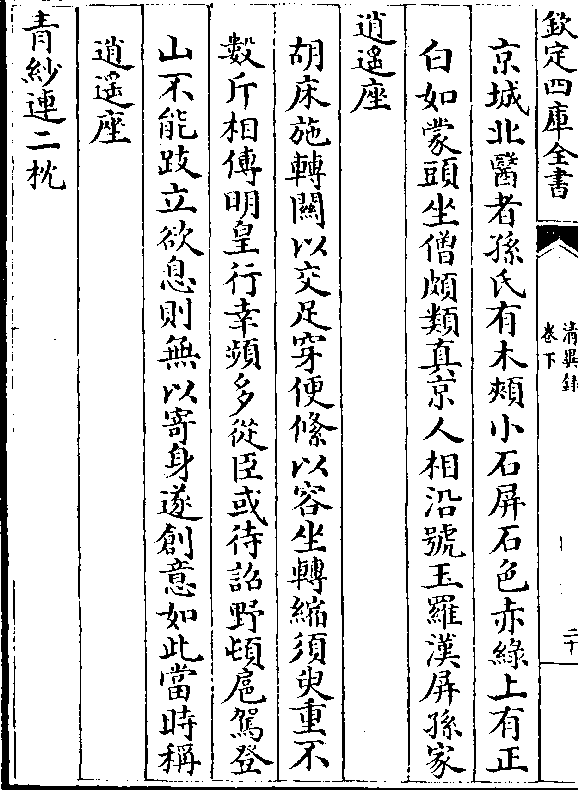 欽定四庫全書
清異錄
卷下
二十
京城北醫者孫氏有木頰小石屏石色赤綠上有正
白如蒙頭坐僧頗類真京人相沿號玉羅漢屏孫家
逍遙座
胡床施轉關以交足穿便絛以容坐轉縮須臾重不
數斤相傳明皇行幸頻多從臣或待詔野頓扈駕登
山不能跂立欲息則無以寄身遂創意如此當時稱
逍遙座
青紗連二枕